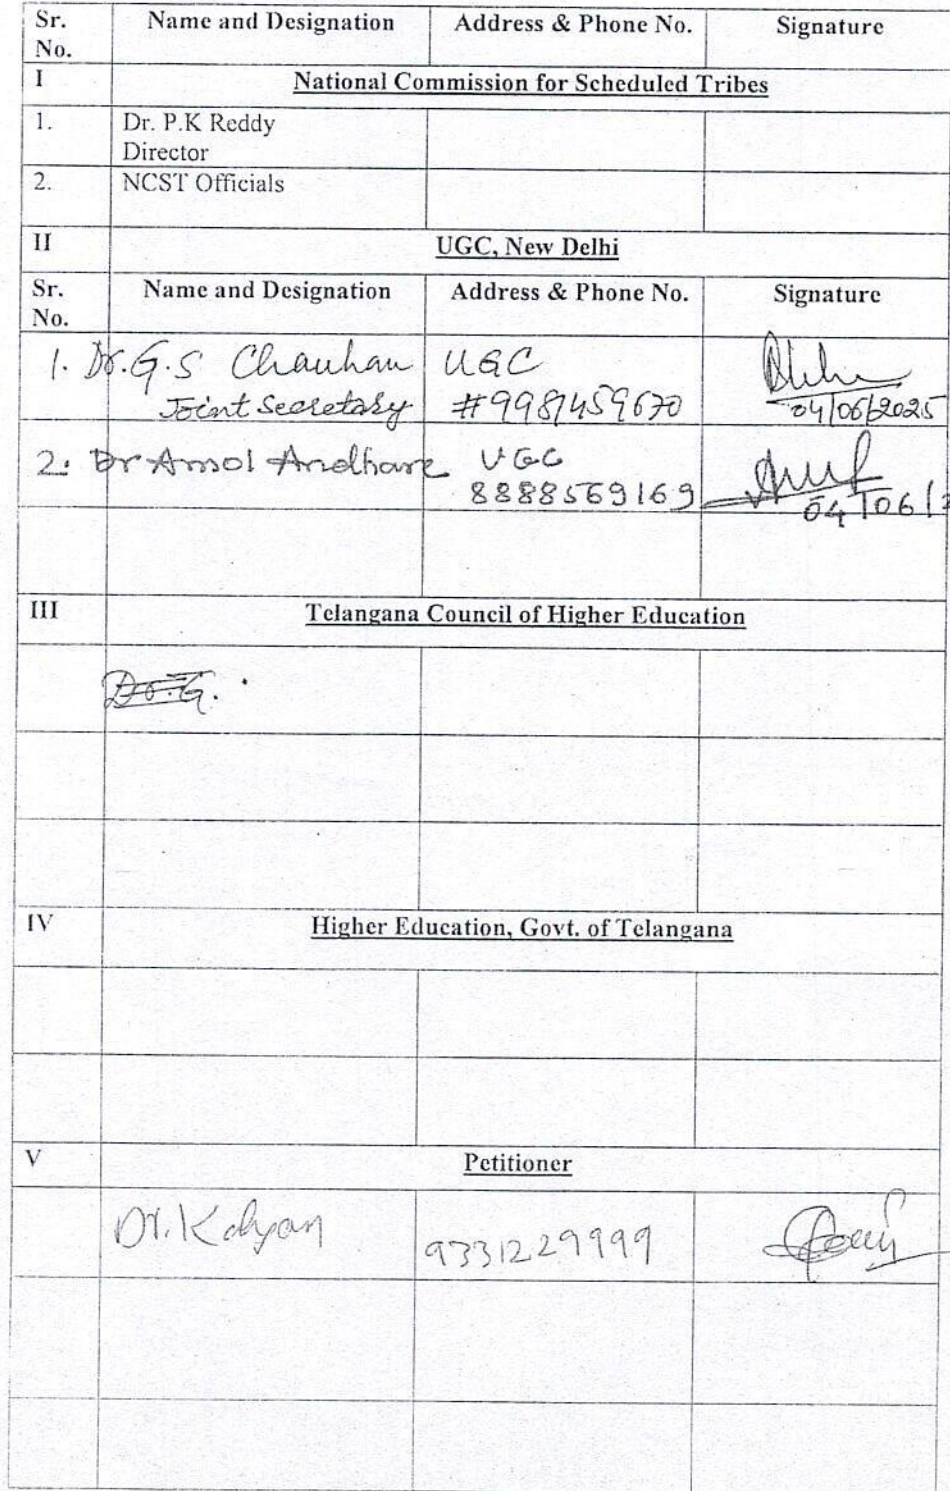 Sr. No. Name and Designation Address & Phone No. Signature
I National Commission for Scheduled Tribes
1. Dr. P.K Reddy
Director
2. NCST Officials
II UGC, New Delhi
Sr. No. Name and Designation Address & Phone No. Signature
1. Dr. G.S Chauhan UGC
Joint Secretary #9981459670 04/06/2025
2. Dr Amol Andhare UGC
8888569169 04/06/2
III Telangana Council of Higher Education
Dr. G.
IV Higher Education, Govt. of Telangana
V Petitioner
Dr. Kalyan 9331229999